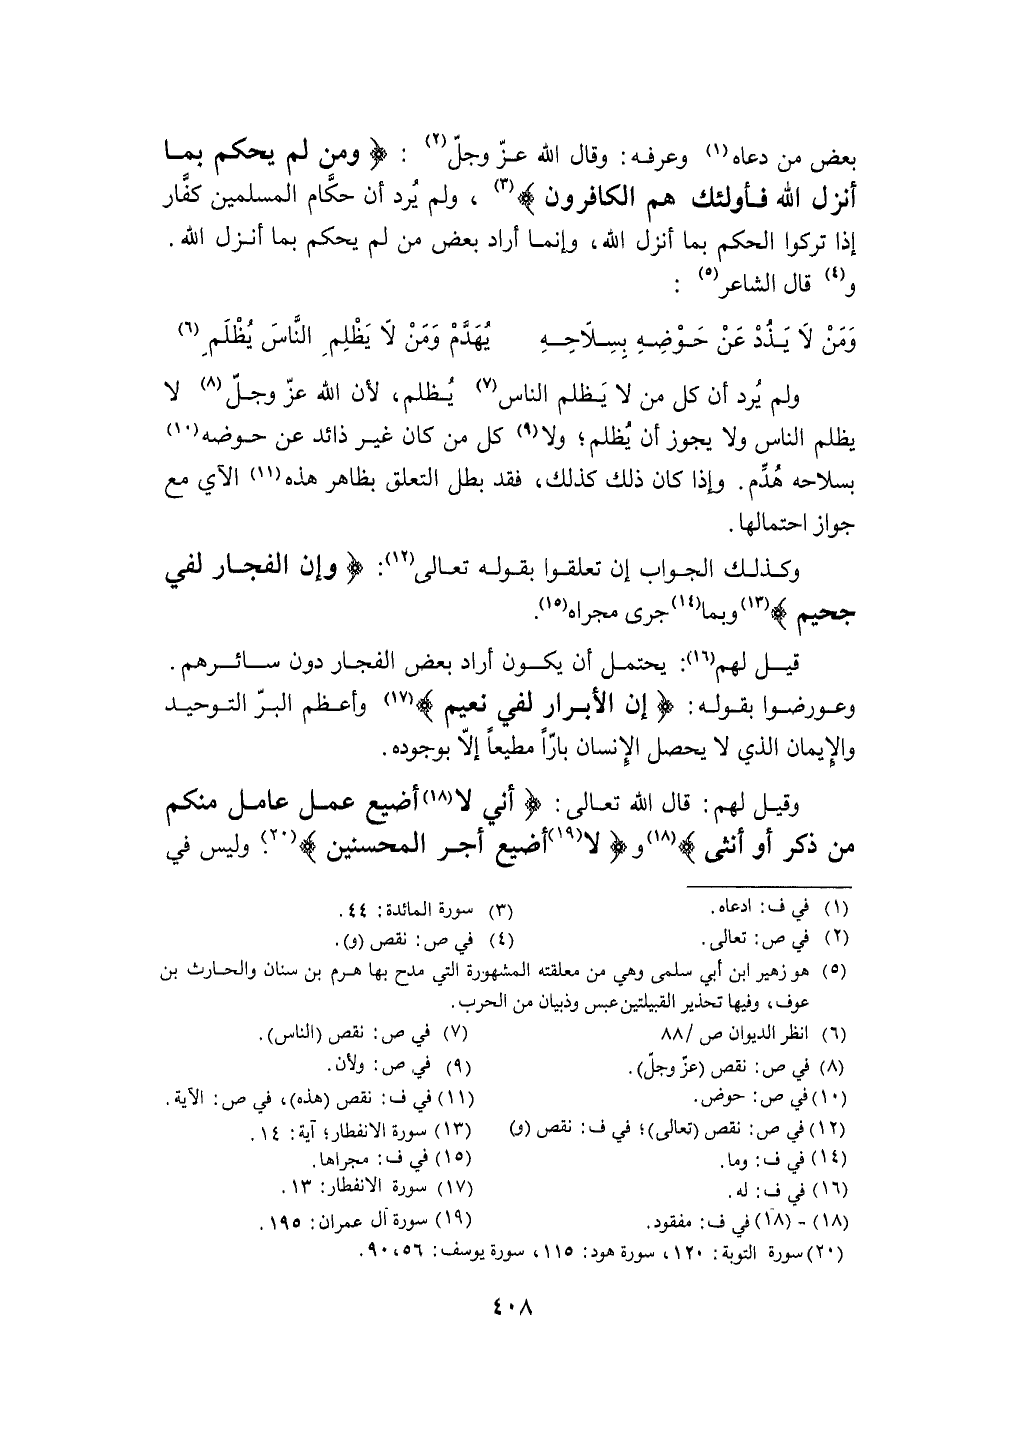 بعض من دعاه(١) وعرفه: وقال الله عزّ وجلّ(٢) : ﴿ ومن لم يحكم بما
أنزل الله فأولئك هم الكافرون ﴾(٣) ، ولم يُرد أن حكَّام المسلمين كفَّار
إذا تركوا الحكم بما أنزل الله، وإنما أراد بعض من لم يحكم بما أنزل الله .
و(٤) قال الشاعر(٥) :
وَمَنْ لَا يَذُدْ عَنْ حَوْضِهِ بِسِلَاحِهِ يُهَدَّمْ وَمَنْ لَا يَظْلِمِ النَّاسَ يُظْلَمِ(٦)
ولم يُرد أن كل من لا يَظلم الناس(٧) يُظلم، لأن الله عزّ وجلّ(٨) لا
يظلم الناس ولا يجوز أن يُظلم؛ ولا(٩) كل من كان غير ذائد عن حوضه(١٠)
بسلاحه هُدِّم. وإذا كان ذلك كذلك، فقد بطل التعلق بظاهر هذه(١١) الآي مع
جواز احتمالها.
وكذلك الجواب إن تعلقوا بقوله تعالى(١٢): ﴿ وإن الفجار لفي
جحيم ﴾(١٣) وبما(١٤) جرى مجراه(١٥).
قيل لهم(١٦): يحتمل أن يكون أراد بعض الفجار دون سائرهم .
وعورضوا بقوله: ﴿ إن الأبرار لفي نعيم ﴾(١٧) وأعظم البرّ التوحيد
والإيمان الذي لا يحصل الإنسان بارّاً مطيعاً إلاّ بوجوده.
وقيل لهم: قال الله تعالى: ﴿ أني لا(١٨) أضيع عمل عامل منكم
من ذكر أو أنثى ﴾(١٨) و﴿ لا(١٩) أضيع أجر المحسنين ﴾(٢٠)؟ وليس في
(١) في ف: ادعاه.
(٢) في ص: تعالى.
(٣) سورة المائدة: ٤٤.
(٤) في ص: نقص (و).
(٥) هو زهير ابن أبي سلمى وهي من معلقته المشهورة التي مدح بها هرم بن سنان والحارث بن
عوف، وفيها تحذير القبيلتين عبس وذبيان من الحرب.
(٦) انظر الديوان ص /٨٨
(٧) في ص: نقص (الناس).
(٨) في ص: نقص (عزّ وجلّ).
(٩) في ص: ولأن.
(١٠) في ص: حوض.
(١١) في ف: نقص (هذه)، في ص: الآية.
(١٢) في ص: نقص (تعالى)؛ في ف: نقص (و)
(١٣) سورة الانفطار؛ آية: ١٤.
(١٤) في ف: وما.
(١٥) في ف: مجراها.
(١٦) في ف: له.
(١٧) سورة الانفطار: ١٣.
(١٨) - (١٨) في ف: مفقود.
(١٩) سورة آل عمران: ١٩٥.
(٢٠) سورة التوبة: ١٢٠، سورة هود: ١١٥، سورة يوسف: ٥٦، ٩٠.
٤٠٨